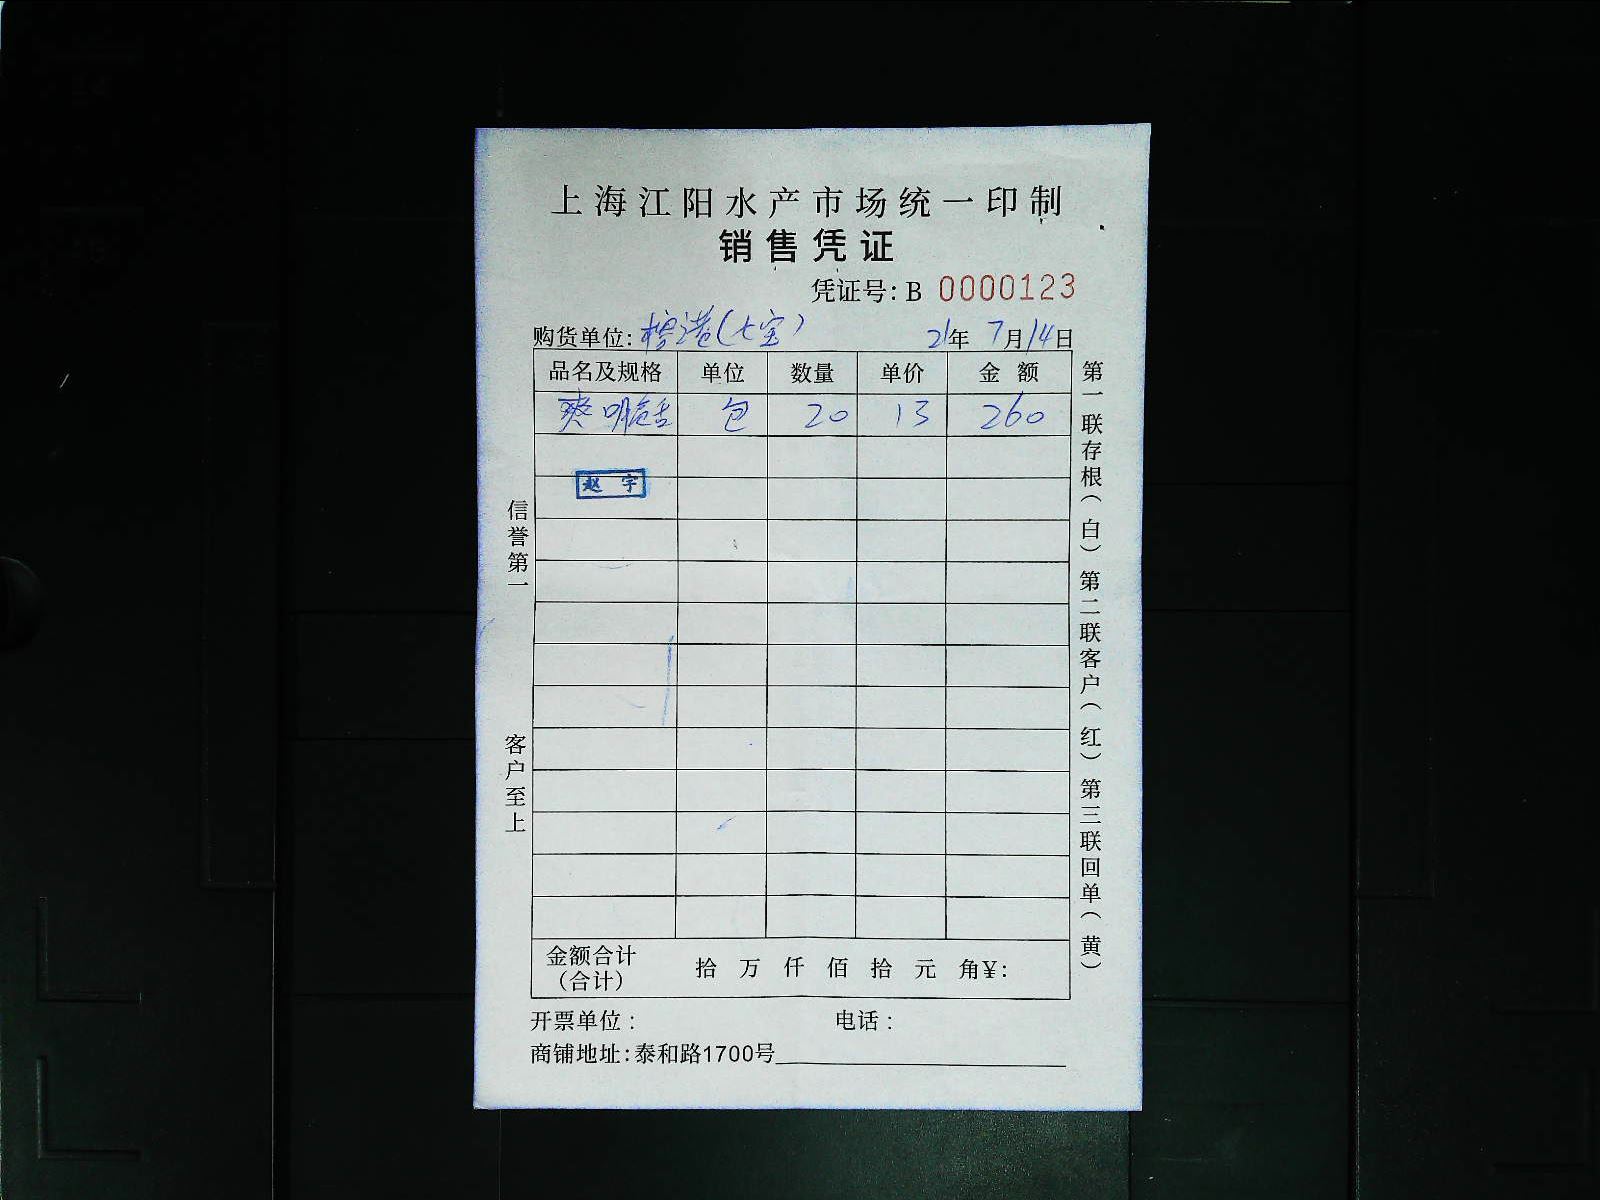 上海江阳水产市场统一印制
销售凭证
凭证号: B 0000123
购货单位: 港(七宝) 21年 7月14日
品名及规格 单位 数量 单价 金额
爽明 包 20 13 260
赵宇
信誉第一
客户至上
第一联存根(白)第二联客户(红)第三联回单(黄)
金额合计 拾 万 仟 佰 拾 元 角¥:
(合计)
开票单位: 电话:
商铺地址:泰和路1700号